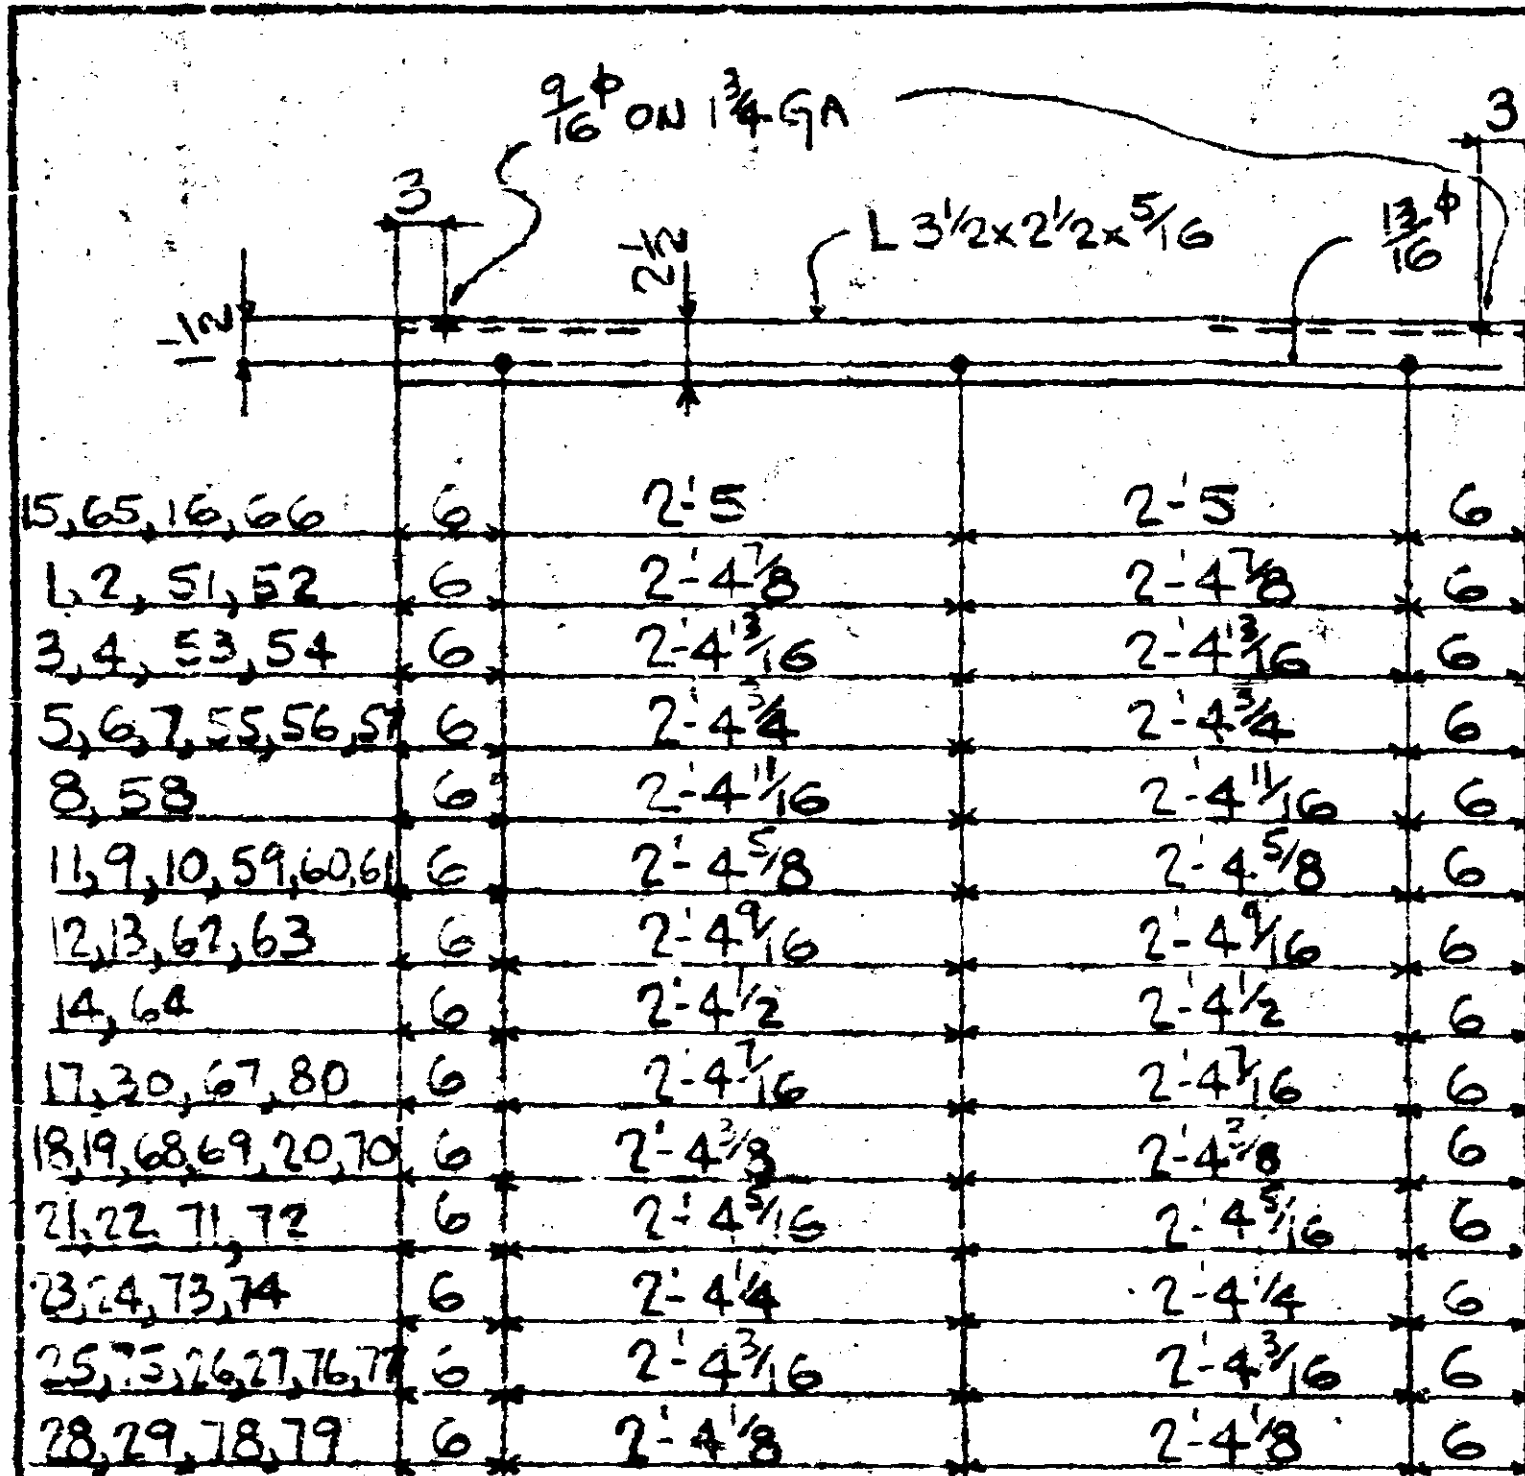 9/16 ϕ ON 1 3/4 GA
3
3
L 3 1/2 x 2 1/2 x 5/16
13/16 ϕ
2 1/2
1 1/2
15,65,16,66 6 2'-5 2'-5 6
1,2,51,52 6 2'-4 7/8 2'-4 7/8 6
3,4,53,54 6 2'-4 13/16 2'-4 13/16 6
5,6,7,55,56,57 6 2'-4 3/4 2'-4 3/4 6
8,58 6 2'-4 11/16 2'-4 11/16 6
11,9,10,59,60,61 6 2'-4 5/8 2'-4 5/8 6
12,13,62,63 6 2'-4 9/16 2'-4 9/16 6
14,64 6 2'-4 1/2 2'-4 1/2 6
17,30,67,80 6 2'-4 7/16 2'-4 7/16 6
18,19,68,69,20,70 6 2'-4 3/8 2'-4 3/8 6
21,22,71,72 6 2'-4 5/16 2'-4 5/16 6
23,24,73,74 6 2'-4 1/4 2'-4 1/4 6
25,75,26,27,76,77 6 2'-4 3/16 2'-4 3/16 6
28,29,78,79 6 2'-4 1/8 2'-4 1/8 6